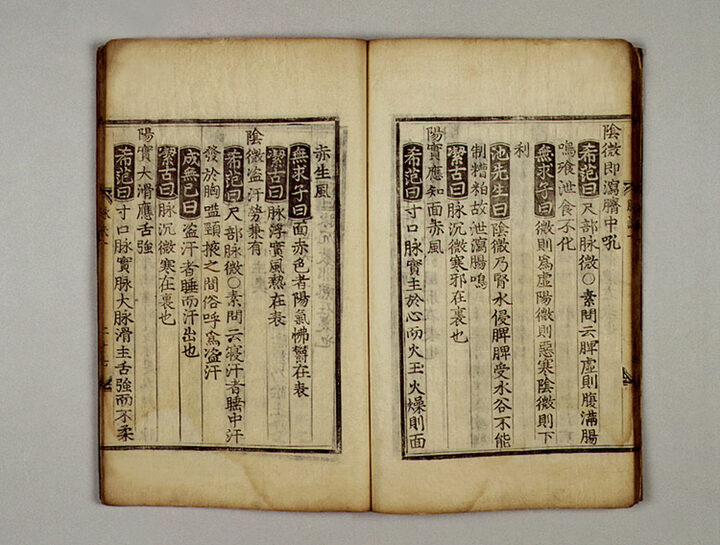 陰微即瀉臍中吼
希范曰尺部脉微〇素問云脾虛則腹滿腸
鳴飱泄食不化
無求子曰微則爲虛陽微則惡寒陰微則下
利
池先生曰陰微乃腎水優脾脾受水谷不能
制糟粕故泄瀉腸鳴
㓗古曰脉沉微寒邪在裏也
陽實應知面赤風
希范曰寸口脉實主於心而火王火燥則面
赤生風
無求子曰面赤色者陽氣怫鬱在表
㓗古曰脉浮實風熱在表
陰微盗汗勞兼有
希范曰尺部脉微〇素問云寝汗者睡中汗
發於胸嗌頸掖之間俗呼爲盗汗
成無已曰盗汗者睡而汗出也
㓗古曰脉沉微寒在裏也
陽實大滑應舌強
希范曰寸口脉實脉大脉滑主舌強而不柔